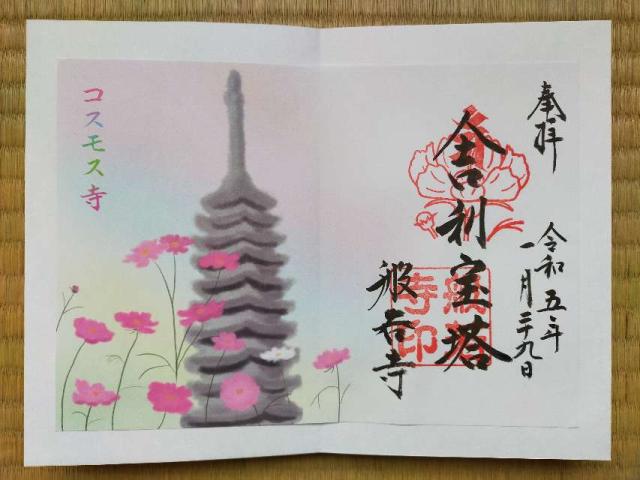 奉拝
令和五年
一月二十九日
舎利宝塔
般若寺
般若
寺印
コスモス寺